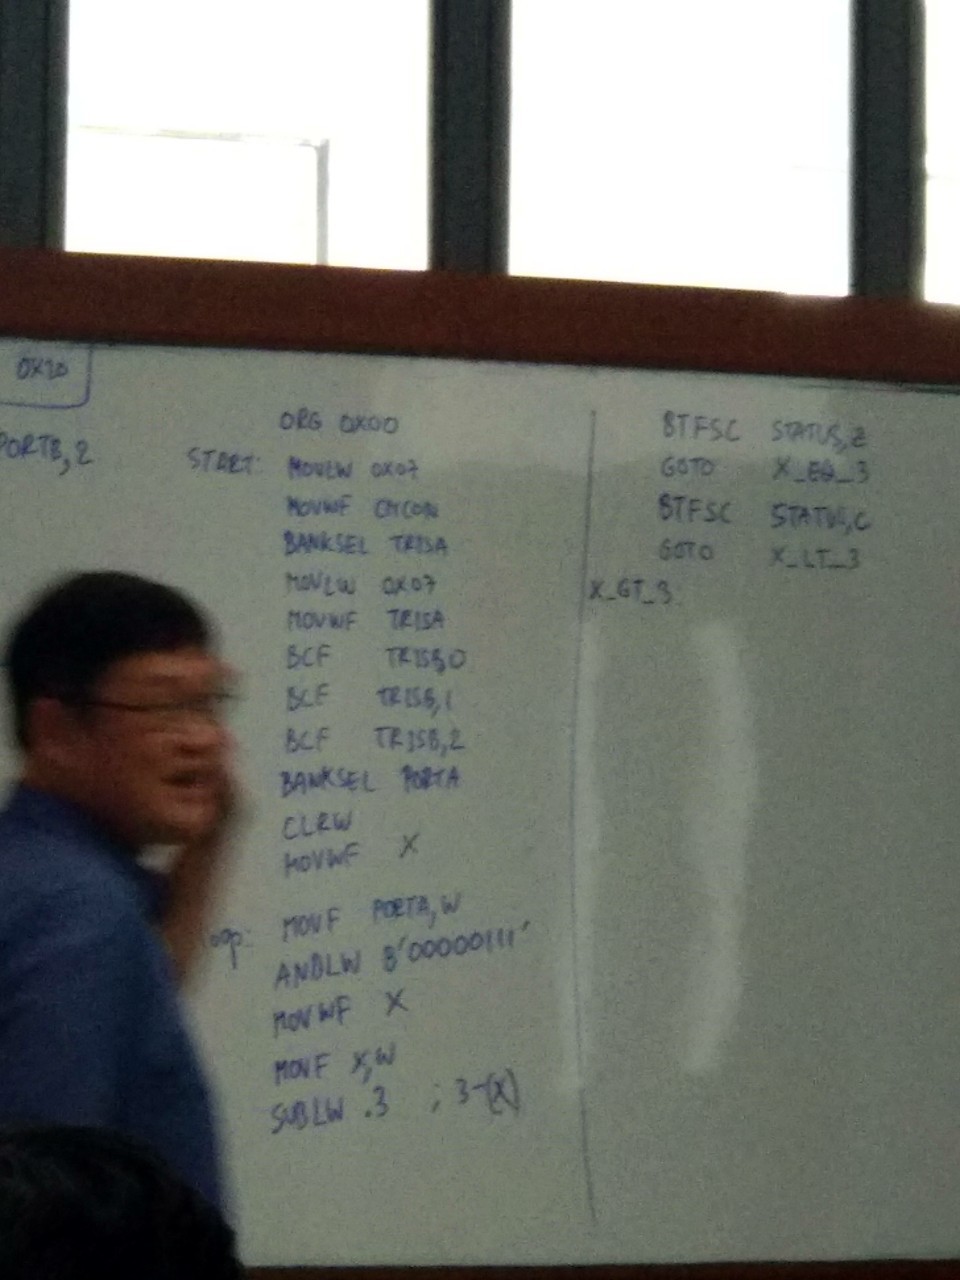 0X20
PORTB,2
ORG 0X00
START: MOVLW 0X07
MOVWF CMCON
BANKSEL TRISA
MOVLW 0X07
MOVWF TRISA
BCF TRISB,0
BCF TRISB,1
BCF TRISB,2
BANKSEL PORTA
CLRW
MOVWF X
oop: MOVF PORTA,W
ANDLW B'00000111'
MOVWF X
MOVF X,W
SUBLW .3 ; 3-(X)
BTFSC STATUS,Z
GOTO X_EQ_3
BTFSC STATUS,C
GOTO X_LT_3
X_GT_3